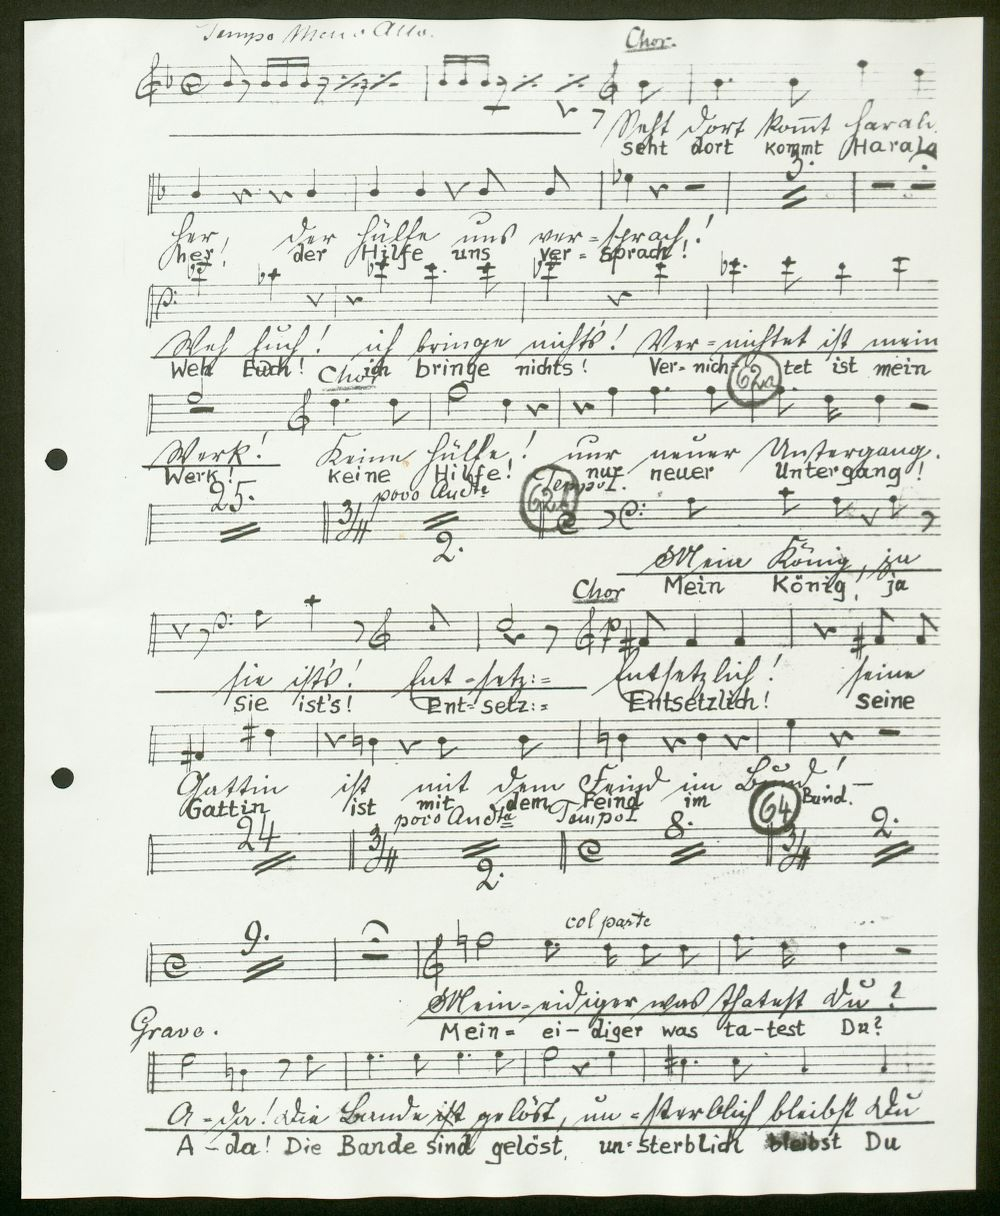 Tempo Meno Allo.
Chor.
Seht dort kommt Harald
seht dort kommt Harald
3.
her, der Hülfe uns ver=sprach!
her! der Hilfe uns ver= sprach!
Weh Euch! ich bringe nichts! Ver=nichtet ist mein
Weh Euch! ich bringe nichts! Ver=nich= tet ist mein
Chor
62a
Werk! Keine Hülfe! nur neuer Untergang.
Werk! keine Hilfe! nur neuer Untergang!
25. poco Andte Tempo I.
3/4 2.
Mein König, ja
Chor Mein König, ja
sie ist's! Ent=setz:= Entsetzlich! seine
Sie ist's! Ent=setz:= Entsetzlich! seine
Gattin ist mit dem Feind im Bund! —
Gattin ist mit dem Feind im Bund.
24 poco Andte Tempo I 8. 64 2.
3/4 2. 3/4
9. col parte
Mein=eidiger was thatest Du?
Grave. Mein= ei–diger was ta–test Du?
A–da! Die Bande ist gelöst, un=sterblich bleibst Du
A–da! Die Bande sind gelöst, un=sterblich bleibst Du